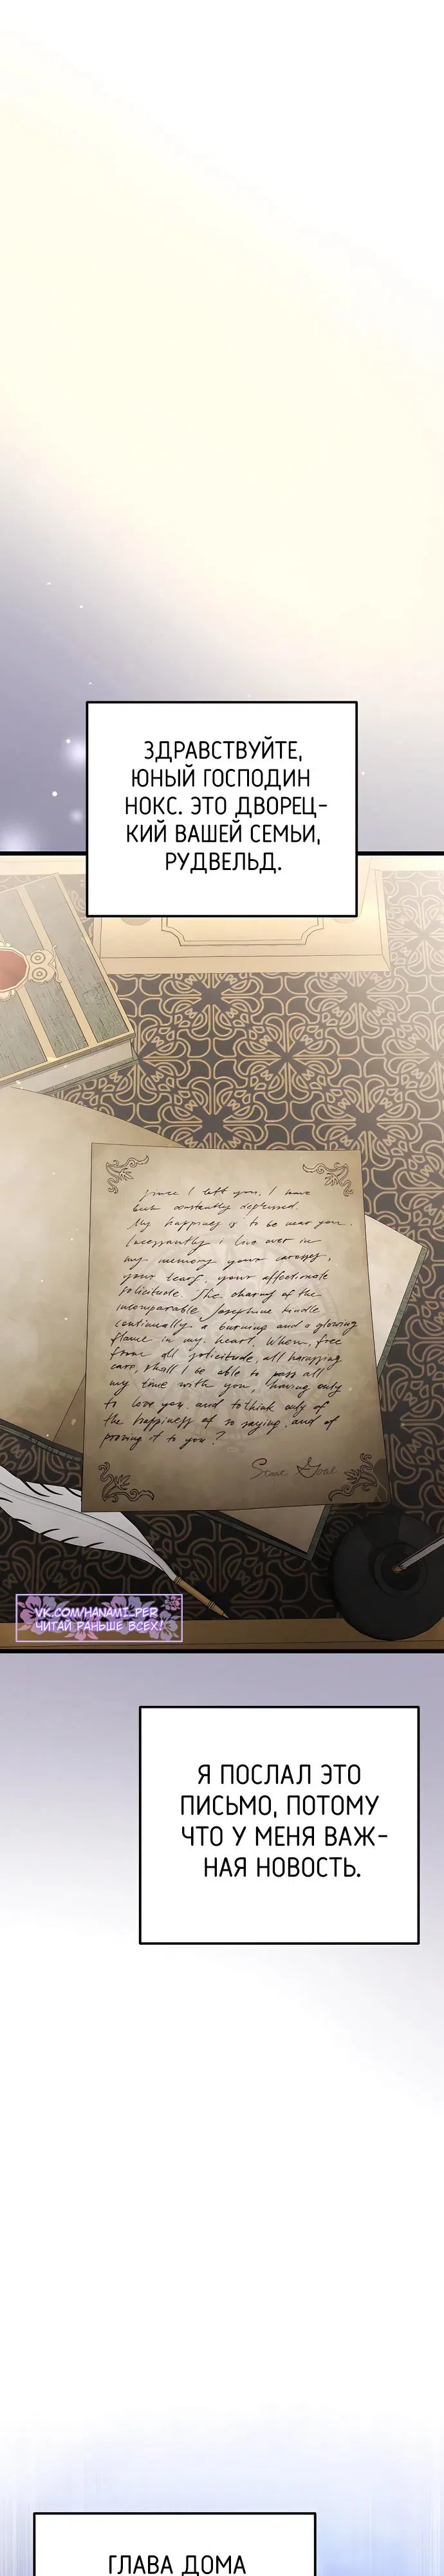 ЗДРАВСТВУЙТЕ,
ЮНЫЙ ГОСПОДИН
НОКС. ЭТО ДВОРЕЦ-
КИЙ ВАШЕЙ СЕМЬИ,
РУДВЕЛЬД.
Since I left you, I have
been constantly depressed.
My happiness is to be near you.
Incessantly i live over in
my memory your caresses,
your tears, your affectionate
solicitude. The charms of the
incomparable Josephine kindle
continually a burning and a glowing
flame in my heart. When, free
from all solicitude, all harassing
care, shall I be able to pass all
my time with you, having only
to love you, and to think only of
the happiness of so saying, and of
proving it to you?
VK.COM/HANAMI_PER
ЧИТАЙ РАНЬШЕ ВСЕХ!
Я ПОСЛАЛ ЭТО
ПИСЬМО, ПОТОМУ
ЧТО У МЕНЯ ВАЖ-
НАЯ НОВОСТЬ.
ГЛАВА ДОМА